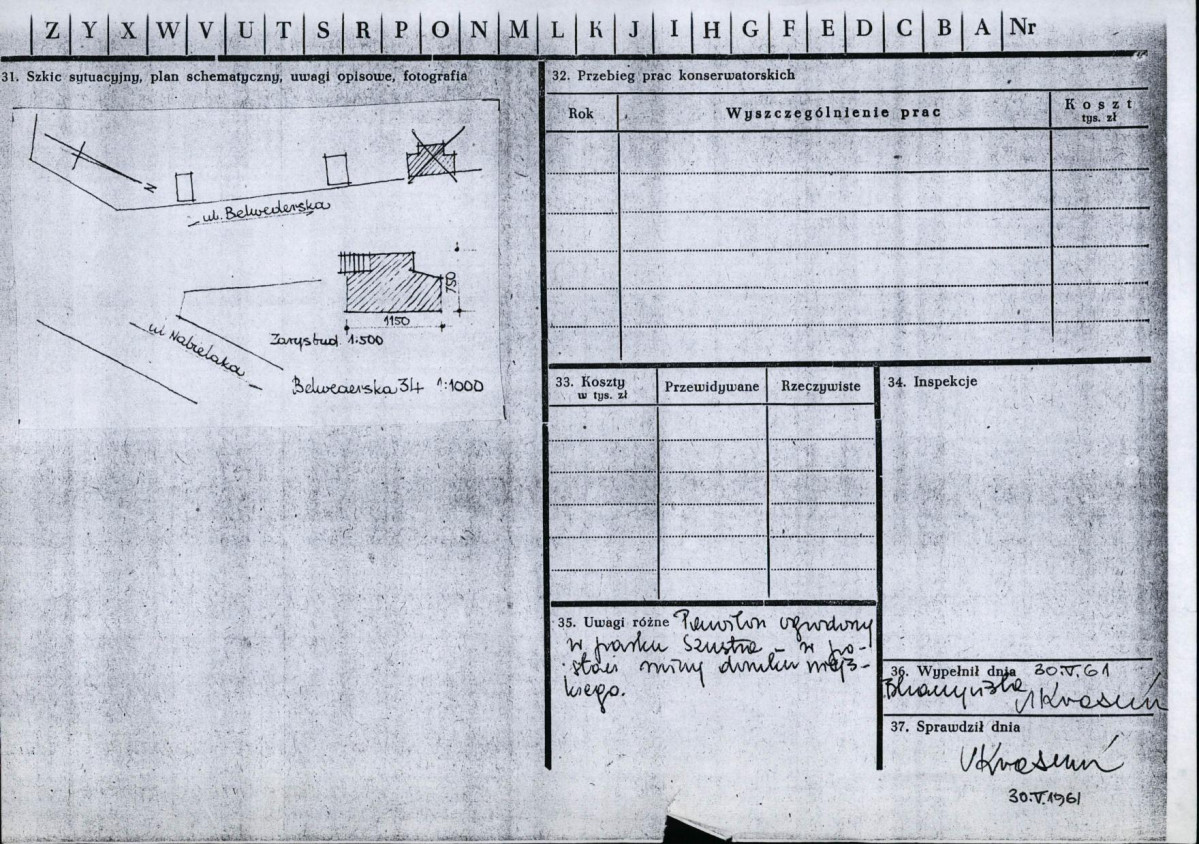 Z Y X W V U T S R P O N M L K J I H G F E D C B A Nr
31. Szkic sytuacyjny, plan schematyczny, uwagi opisowe, fotografia
N
ul. Belwederska
750
1150
Zarys bud. 1:500
ul Nabielaka
Belwederska 34 1:1000
32. Przebieg prac konserwatorskich
Rok
Wyszczególnienie prac
Koszt
tys. zł
33. Koszty
w tys. zł
Przewidywane
Rzeczywiste
34. Inspekcje
35. Uwagi różne Pawilon ogrodowy
w parku Szustra – w po-
staci ruiny domku wiej-
skiego.
36. Wypełnił dnia 30.V.61
37. Sprawdził dnia
30.V.1961